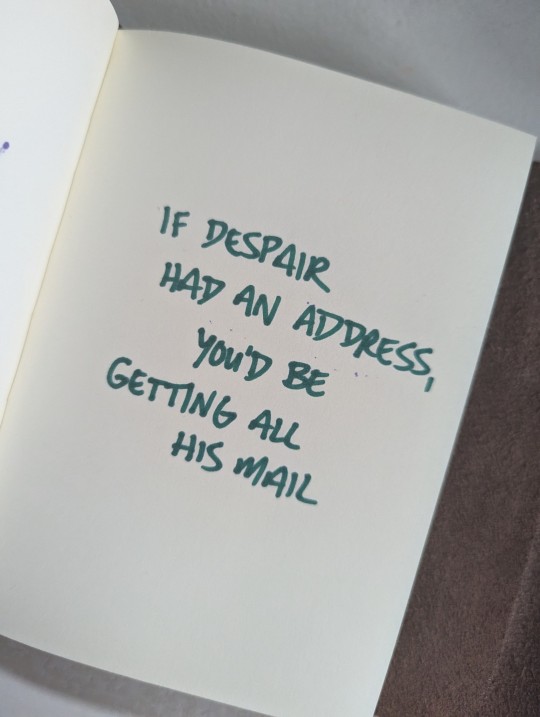 IF DESPAIR
HAD AN ADDRESS,
YOU'D BE
GETTING ALL
HIS MAIL